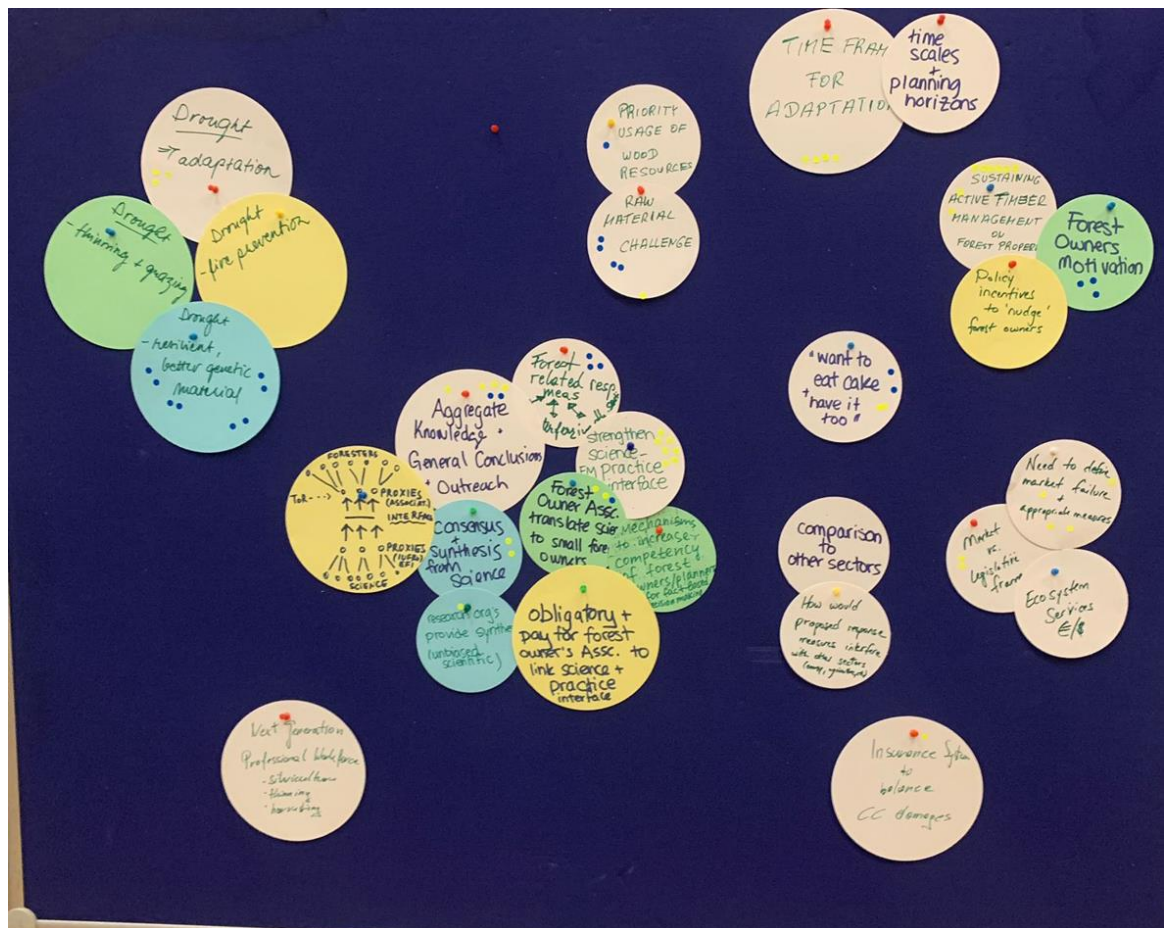 Drought
⇒ adaptation
Drought
- thinning + grazing
Drought
- fire prevention
Drought
- resilient,
better genetic
material
PRIORITY
USAGE OF
WOOD
RESOURCES
RAW
MATERIAL
CHALLENGE
TIME FRAM
FOR
ADAPTATIO
time
scales
+
planning
horizons
SUSTAINING
ACTIVE TIMBER
MANAGEMENT
ON
FOREST PROPER
Forest
Owners
Motivation
Policy
incentives
to 'nudge'
forest owners
"want to
eat cake
+ have it
too"
Forest
related resp.
meas
Aggregate
Knowledge +
General Conclusions
+ Outreach
strengthen
science-
FM practice
interface
FORESTERS
ToR --->
PROXIES
(ASSOCIAT.)
INTERFACE
PROXIES
(IUFRO
EFI)
SCIENCE
Consensus
+
synthesis
from
science
Forest
Owner Ass.
translate scie
to small fore
owners
Mechanisms
to increase
competency
of forest
owners/planners
for fact-based
decision making
research org's
provide synthe
(unbiased
scientific)
obligatory +
pay for forest
owner's Assc. to
link science +
practice
interface
comparison
to
other sectors
How would
proposed response
measures interfere
with other sectors
Need to define
market failure
+
appropriate measures
Market
vs.
legislative
frame
Ecosystem
Services
€/$
Next generation
Professional Workforce
- silviculture
- thinning
- harvesting
Insurance System
to
balance
CC damages